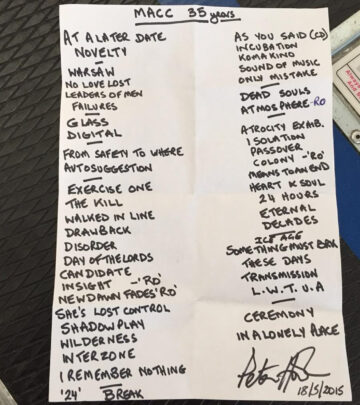 MACC 35 years
AT A LATER DATE
NOVELTY
WARSAW
NO LOVE LOST
LEADERS OF MEN
FAILURES
GLASS
DIGITAL
FROM SAFETY TO WHERE
AUTOSUGGESTION
EXERCISE ONE
THE KILL
WALKED IN LINE
DRAWBACK
DISORDER
DAY OF THE LORDS
CANDIDATE
INSIGHT -'RO'
NEW DAWN FADES 'RO'
SHE'S LOST CONTROL
SHADOWPLAY
WILDERNESS
INTERZONE
I REMEMBER NOTHING
'24' BREAK
AS YOU SAID (CD)
INCUBATION
KOMAKINO
SOUND OF MUSIC
ONLY MISTAKE
DEAD SOULS
ATMOSPHERE -RO
ATROCITY EXHIB.
ISOLATION
PASSOVER
COLONY -'RO'
MEANS TO AN END
HEART & SOUL
24 HOURS
ETERNAL
DECADES
ICE AGE
SOMETHING MUST BRK
THESE DAYS
TRANSMISSION
L.W.T.U.A
CEREMONY
IN A LONELY PLACE
18/5/2015